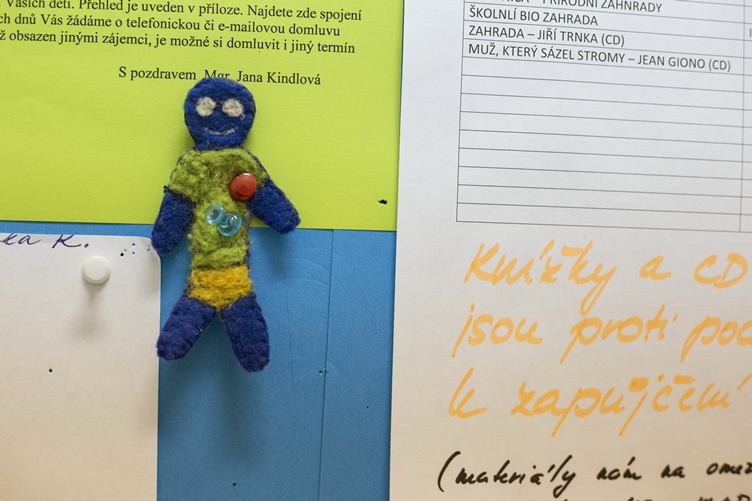 Vašich dětí. Přehled je uveden v příloze. Najdete zde spojení
dnů Vás žádáme o telefonickou či e-mailovou domluvu
obsazen jinými zájemci, je možné si domluvit i jiný termín
S pozdravem Mgr. Jana Kindlová
K.
PŘÍRODNÍ ZAHNRADY
ŠKOLNLÍ BIO ZAHRADA
ZAHRADA – JIŘÍ TRNKA (CD)
MUŽ, KTERÝ SÁZEL STROMY – JEAN GIONO (CD)
Knížky a CD
jsou proti
k zapůjčení
(materiály nám na